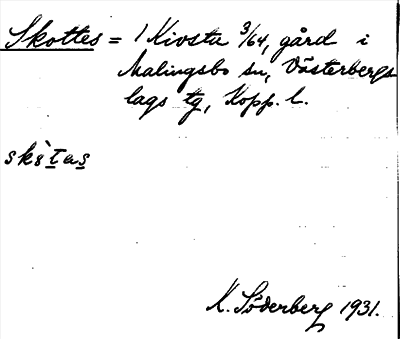 Skottes = 1 Kivsta 3/64, gård i
Malingsbo sn, Västerbergs
lags tg, Kopp. l.
skò̈tas
K. Söderberg 1931.